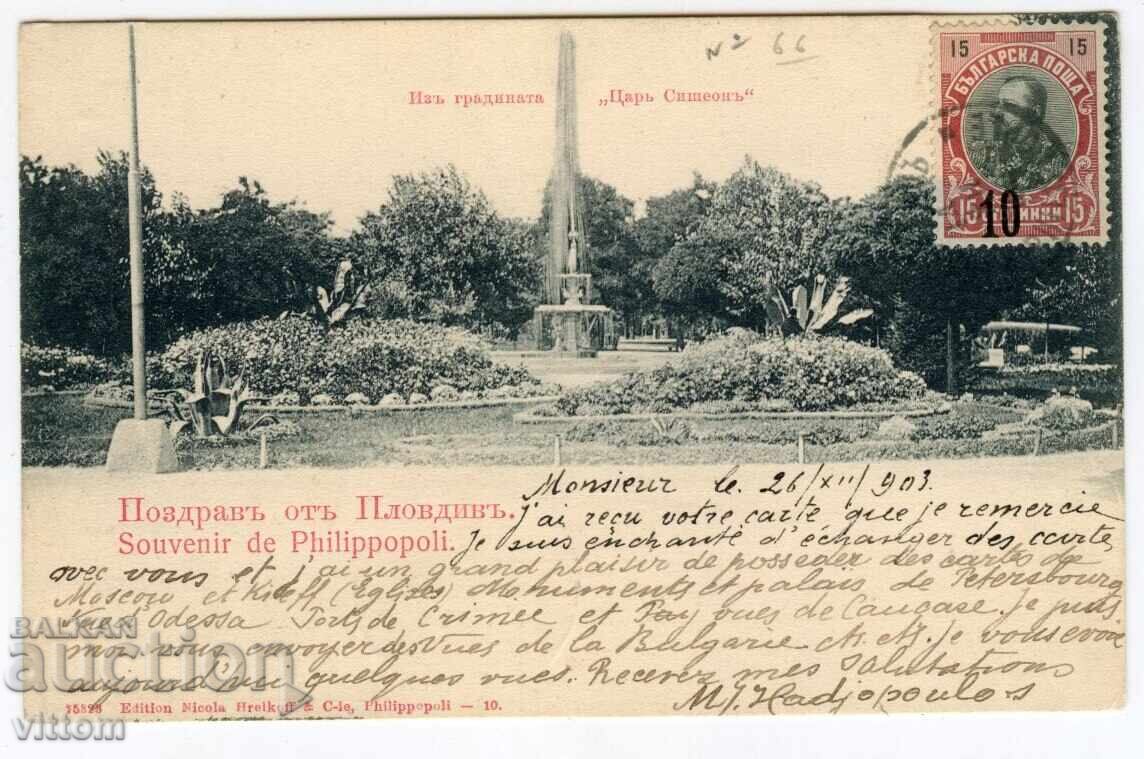 № 66
Изъ градината „Царь Симеонъ“
15 15
БЪЛГАРСКА ПОЩА
10
15 15
Поздравъ отъ Пловдивъ.
Souvenir de Philippopoli.
Monsieur le. 26/XII/903.
J'ai reçu votre carte que je remercie
Je suis enchanté d'échanger des cartes
avec vous et j'ai un grand plaisir de posseder des cartes de
Moscou et Kieff (Eglises) Monuments et palais de Petersbourg
Odessa Ports de Crimée et vues de Caucase. Je puis
moi vous envoyer des Vues de la Bulgarie Je vous envoie
aujourd'hui quelques vues. Recevez mes Salutations
M. J. Hadjopoulos
Edition Nicola Hreikoff & C-ie, Philippopoli — 10.
BALKAN
auction
vittom